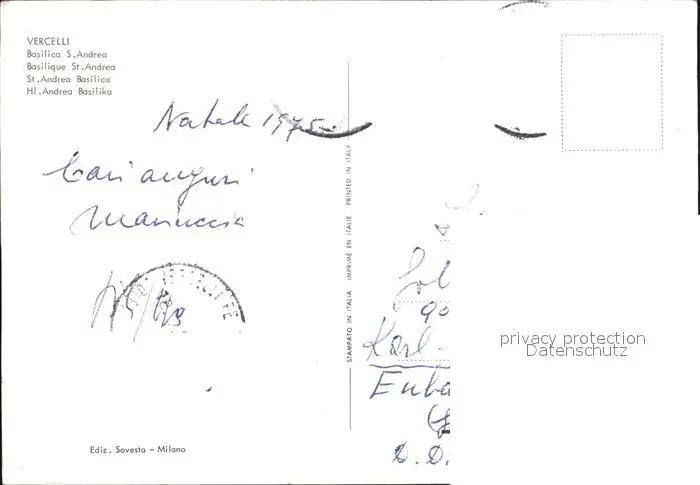 VERCELLI
Basilica S. Andrea
Basilique St. Andrea
St. Andrea Basilica
Hl. Andrea Basilika
Natale 1975
Cari auguri
Mariuccia
STAMPATO IN ITALIA IMPRIMÉ EN ITALIE PRINTED IN ITALY
Karl-
D.D.
privacy protection
Datenschutz
Ediz. Sovesta - Milano